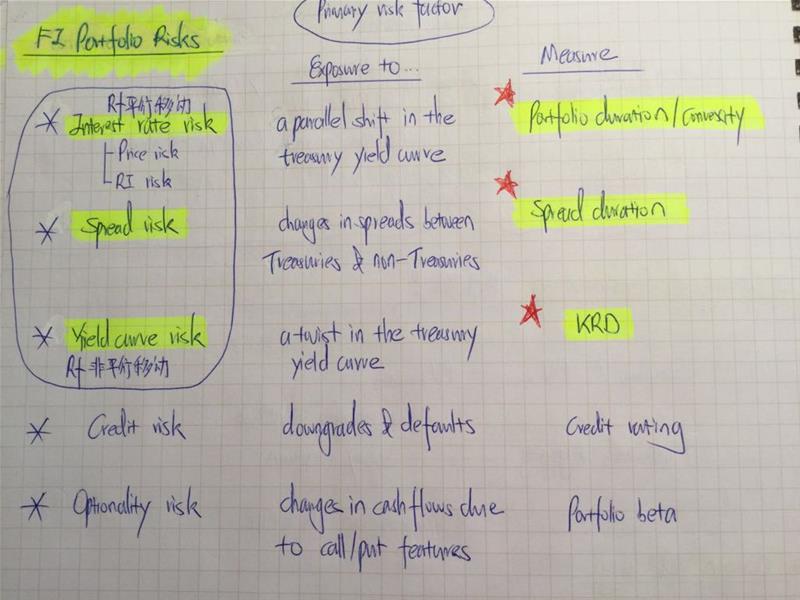 Primary risk factor
FI Portfolio Risks
Exposure to...
Measure
Rf平行移动
* Interest rate risk
a parallel shift in the
treasury yield curve
Portfolio duration/Convexity
Price risk
RI risk
* Spread risk
changes in spreads between
Treasuries & non-Treasuries
Spread duration
* Yield curve risk
Rf非平行移动
a twist in the treasury
yield curve
KRD
* Credit risk
downgrades & defaults
Credit rating
* Optionality risk
changes in cash flows due
to call/put features
Portfolio beta